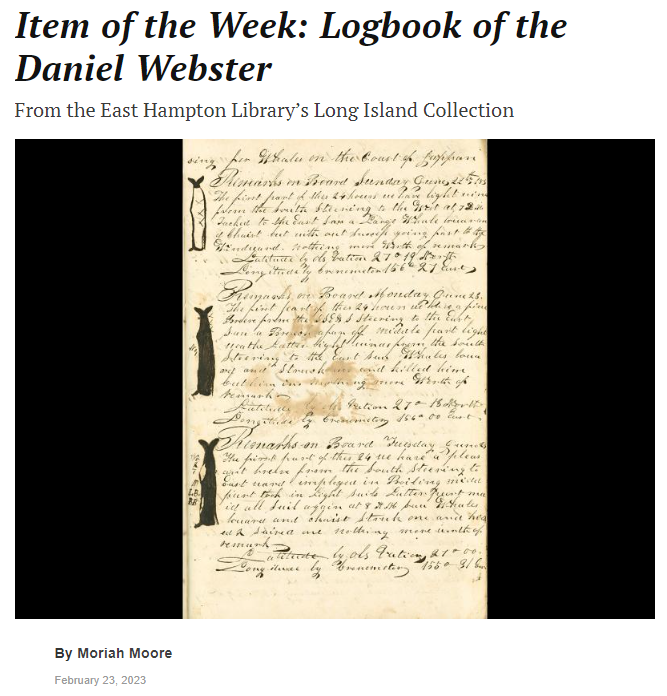 Item of the Week: Logbook of the
Daniel Webster
From the East Hampton Library's Long Island Collection
sing for Whales on the Coast of Jappan
Remarks on Board Sunday June 22
The first part of this 24 hours we have light
from the South Steering to the West at
Tacked to the East Saw a Large Whale
chaist but with out
Windward nothing more Worth of remark
Latitude by obs Vation 27 = 19 North
Longitude by Cronometer 156 = 27 East
Remarks on Board Monday June 23
The first part of this 24 hours
from the SSE Steering to the East
middle part light
from the South
Steering to the East Saw Whales
off and Struck one and killed him
nothing more Worth of
remark
Latitude by obs Vation 27 = 18 North
Longitude by Cronometer 156 = 00 East
Remarks on Board Tuesday June
The first part of this 24 we have a pleas
ant breese from the South Steering to
East ward imployed in Boiling midd
part took in Light Sails Latter part
all Sail again at 8 AM Saw Whales
and chaist Struck one and
nothing more worth of
remark
Latitude by obs Vation 27 = 00
Longitude by Cronometer
By Moriah Moore
February 23, 2023